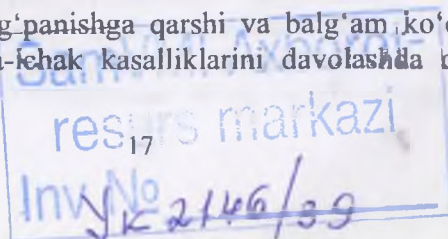 g‘panishga qarshi va balg‘am ko‘
-ichak kasalliklarini davolashda
resurs markazi
17
Inv №
2146/39